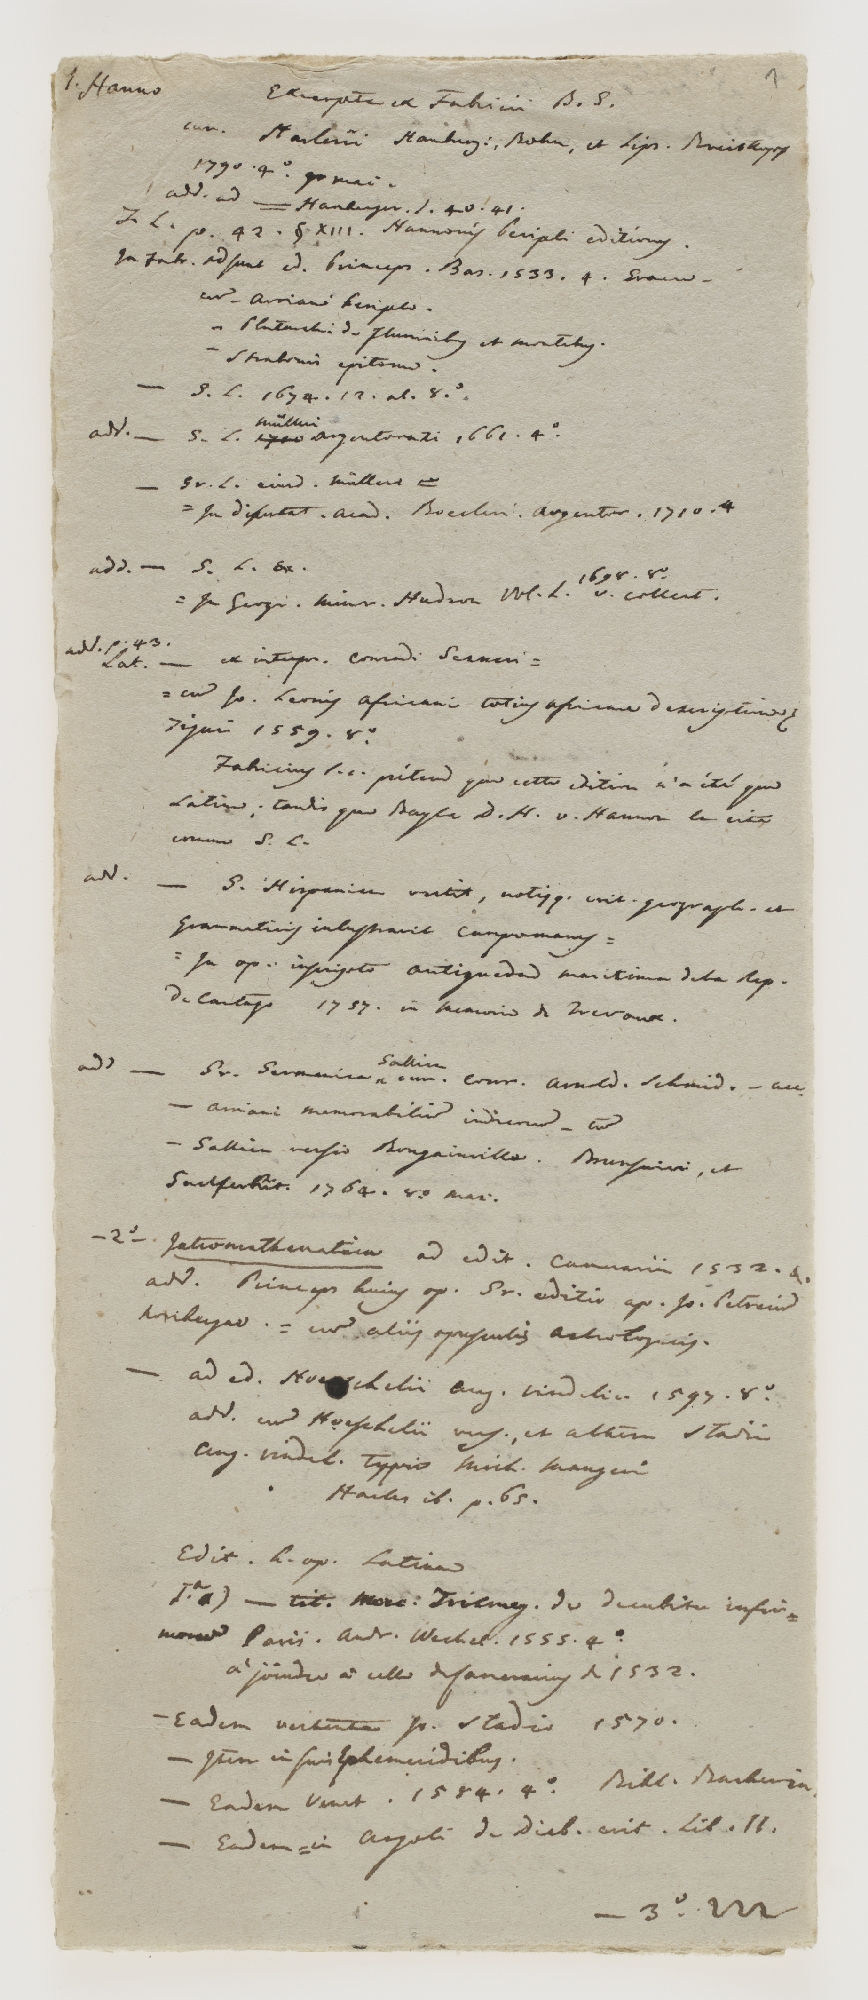 1. Hanno Excerpta ex Fabricii B. G.
cur. Harlesii Hamburg:, Bohn, et Lips. Breitkopf
1790. 4°. mai.
add. ad — Hamberger. l. 40. 41.
p. 42. § XIII. Hannonis Peripli editiones.
In Fabr. adsunt ed. Princeps. Bas. 1533. 4. Graece
cum Arriani Periplo.
" Plutarchi de fluminibus et montibus.
" Strabonis epitome.
— G. L. 1674. 12. al. 8.°
add. — G. L. Mülleri Argentorati, 1661. 4°.
— Gr. L. eiusd. Mülleri =
= In disputat. acad. Boecleri. Argentor. 1710. 4
add. — G. L. ex.
= In Geogr. minor. Hudson Vol. I. 1698. 8° v. collect.
add. p. 43.
Lat. — ex interpr. Conradi Gesneri =
= cum Jo. Leonis Africani totius Africae descriptione
Tiguri 1559. 8°.
Fabricius l. c. prétend que cette édition n'a été que
Latine; tandis que Bayle D. H. v. Hannon la cite
comme G. L.
add. — G. Hispanice vertit, notisq. crit. geograph. et
Grammaticis inlustravit Campomanes =
= In op. inscripto antiguedad maritima de la Rep.
de Cartago 1757. in memoire de Trevoux.
add — Gr. Germanice Gallice cur. Conr. Arnold. Schmid. — acc.
— Arriani memorabilium indicorum — cum
— Gallica versio Bougainville. Brunsuici, et
Guelferbit. 1764. 8.° mai.
— 2°— Iatromathematica ad edit. Camerarii 1532. 4.°
add. Princeps huius op. Gr. editio ap. Jo. Petreium
Noribergae. = cum aliis opusculis astrologicis.
— ad ed. Hoeschelii Aug. Vindelic. 1597. 8°.
add. cum Hoeschelii vers., et altera Stadii
Aug. Vindel. typis Mich. Mangeri
Harles ib. p. 65.
Edit. h. op. Latinae
1.a) — tit. Merc. Trismeg. de decubitu infir=
morum Paris. Andr. Wechel. 1555. 4°.
à joindre à celle de Camerarius de 1532.
— Eadem vertente Jo. Stadio 1570.
— Item in suis Ephemeridibus.
— Eadem Venet. 1584. 4°. Bibl. Barberin.
— Eadem = in Argoli de Dieb. crit. Lib. II.
— 3°.